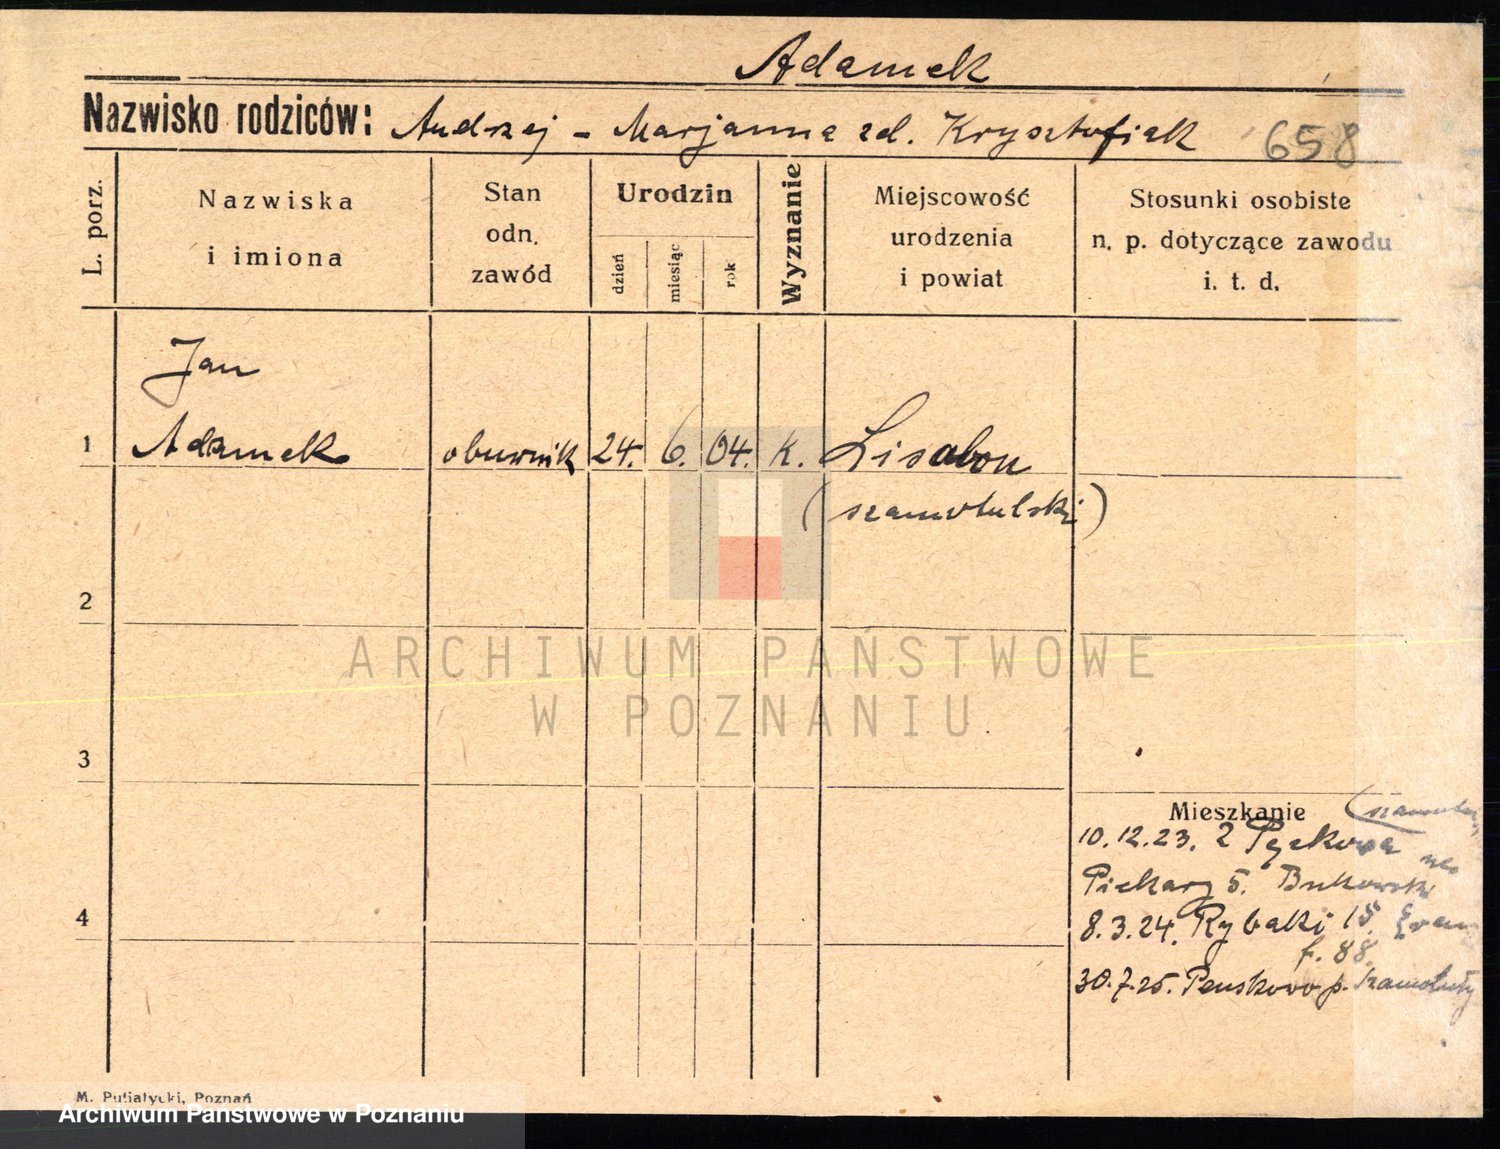 Adamek
Nazwisko rodziców: Andrzej - Marjanna zd. Krysztofiak 658
L. porz.
Nazwiska
i imiona
Stan
odn.
zawód
Urodzin
dzień
miesiąc
rok
Wyznanie
Miejscowość
urodzenia
i powiat
Stosunki osobiste
n. p. dotyczące zawodu
i. t. d.
Jan
1 Adamek obuwnik 24. 6. 04. k. Lisabon
(szamotulski)
2
ARCHIWUM PAŃSTWOWE
W POZNANIU
3
Mieszkanie
10.12.23. z
Piekary 5. Bukowski
4
8.3.24. Rybaki 15.
f. 88.
30.7.25. p. Szamotuły
M. Putiatycki, Poznań
Archiwum Państwowe w Poznaniu